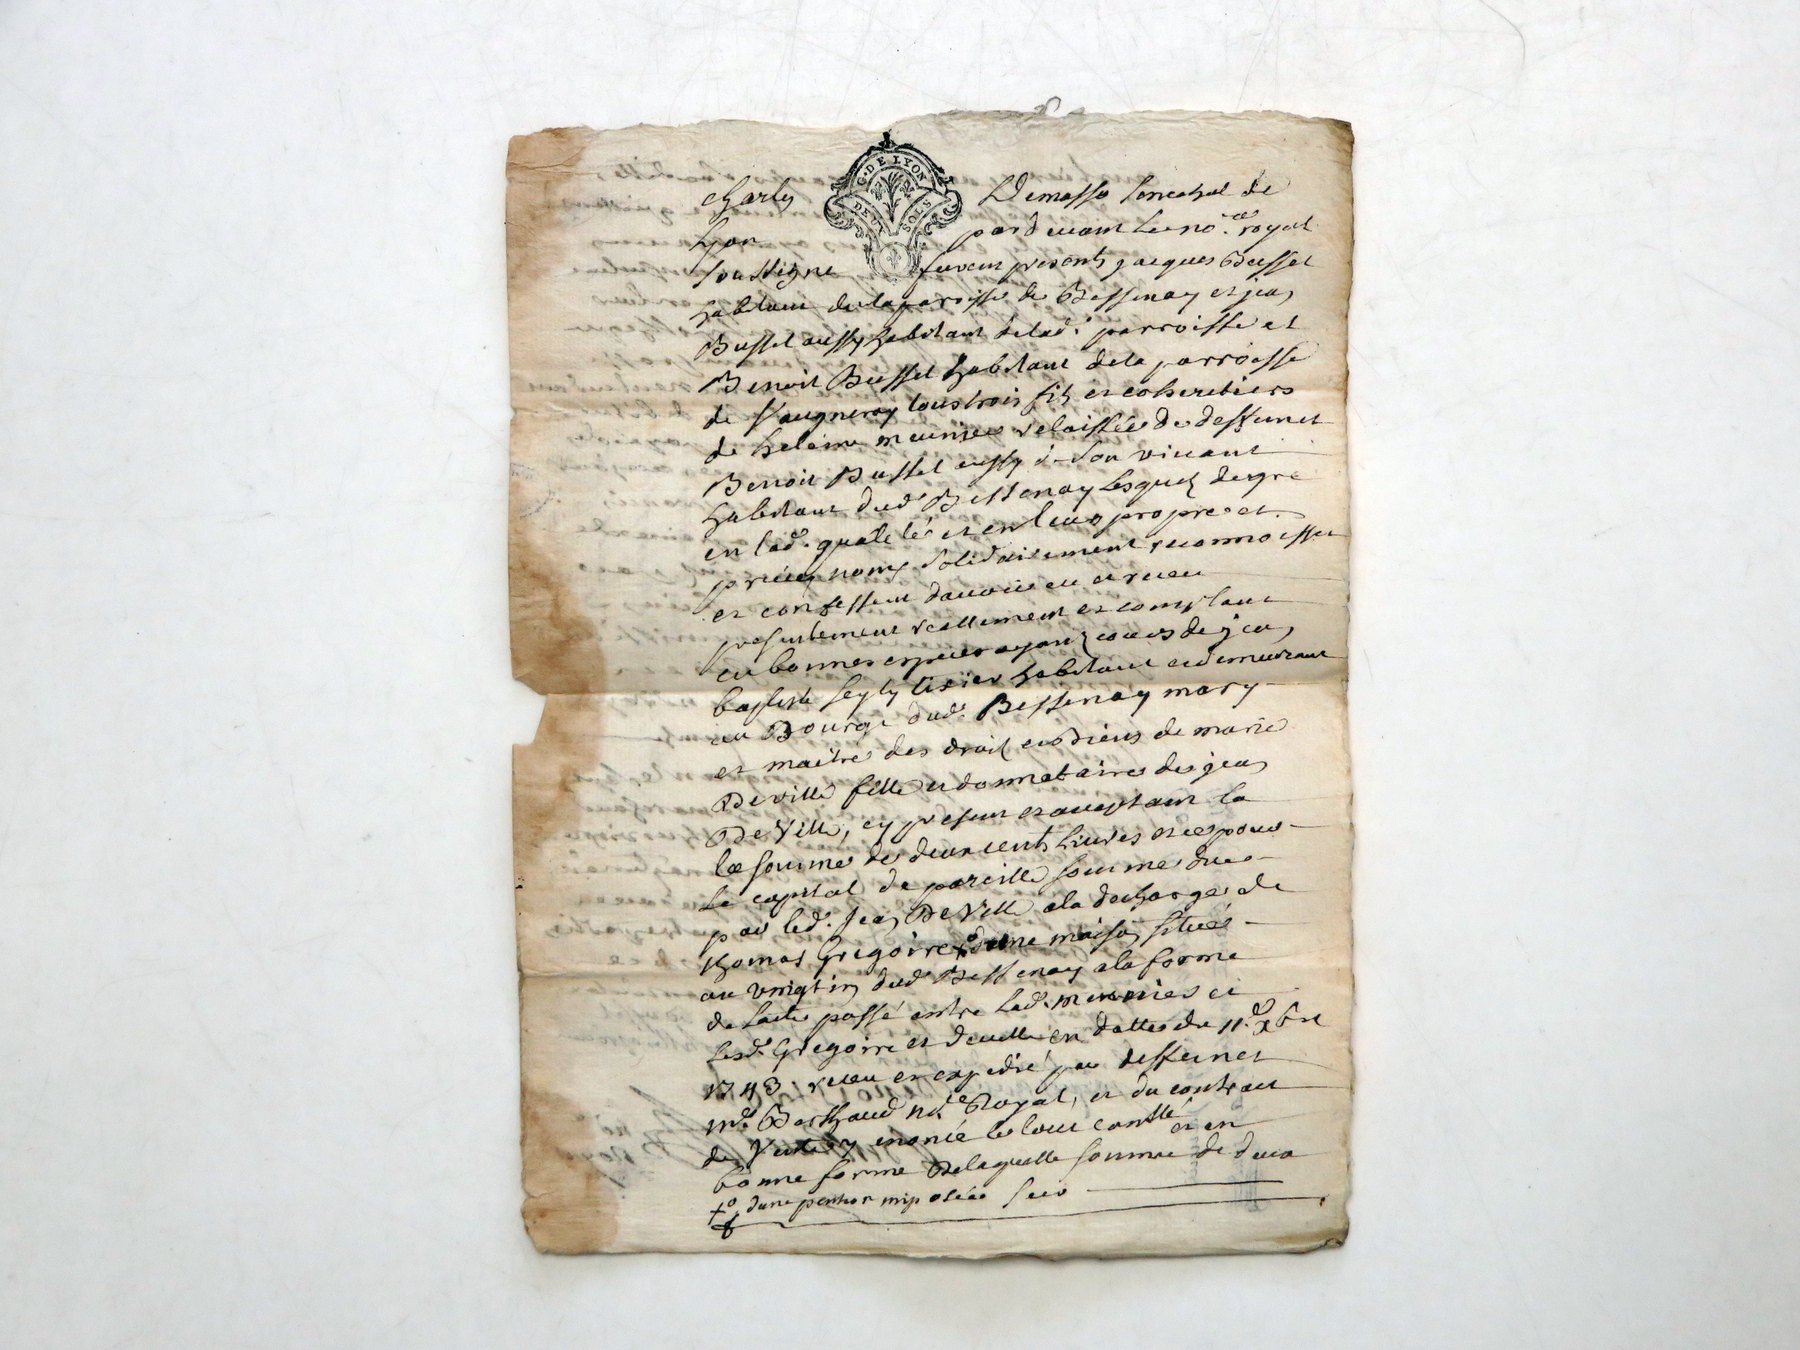 G. DE LYON
DEUX SOLS
charles Demasso senechal de
Lyon pardevant le no.re royal
soussigné furent presents jacques Bussel
habitant de la paroisse de Bessenay et jean
Bussel aussy habitant de lad. parroisse et
Benoit Bussel habitant de la parroisse
de Vaugneray tous trois fils et coheritiers
de helaine meunier relaissée de deffunct
Benoit Bussel aussy de son vivant
habitant dud. Bessenay lesquels de gré
en lad. qualité et en leurs propres et
privés noms solidairement reconnoissent
et confessent davoir eu et receu
presentement reellement et comptant
en bonnes especes ayant cours de jean
baptiste tixier habitant et demeurant
au Bourg dud. Bessenay mary
et maitre des droits et biens de marie
De ville fille et donnataire de jean
De Ville, cy present et acceptant la
la somme de deux cents livres et ce pour
le capital de pareille somme due
par led. Jean De Ville a la decharge de
thomas Gregoire x d'une maison situés
au vingtin dud. Bessenay a la forme
de lacte passé entre lad. meunier et
lesd. Gregoire et deville en datte du 11.e xbre
1743 receu et expedié par deffunct
m.e Berthaud no.re Royal, et du contract
de y enoncé le tout conllé et en
bonne forme De laquelle somme de deux
x dune pention imposée sur